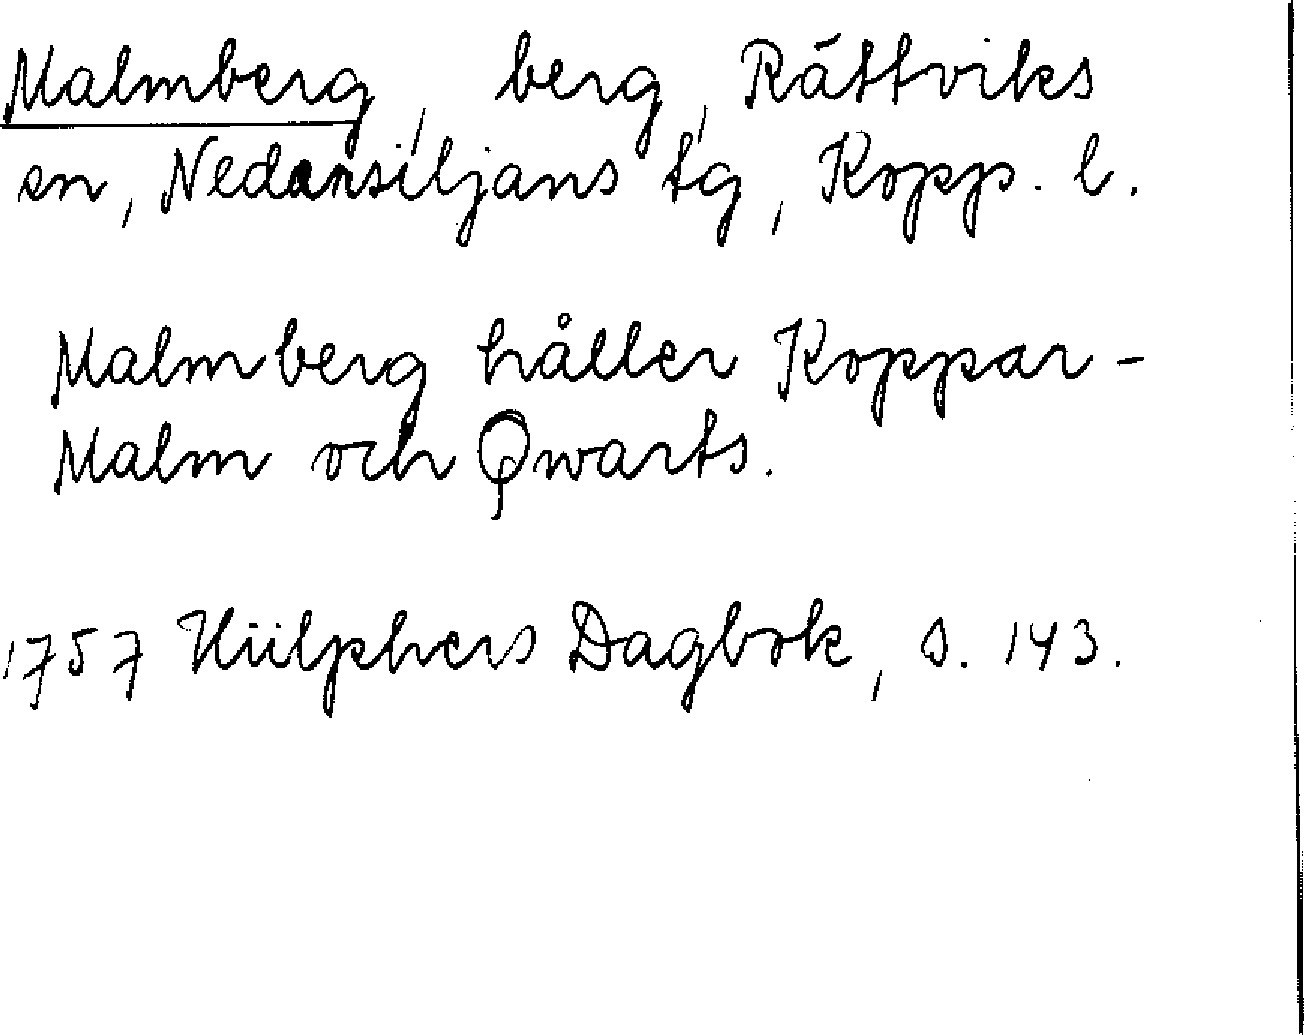 Malmberg, berg, Rättviks
sn, Nedansiljans tg, Kopp. l.
Malmberg håller Koppar-
Malm och Qwarts.
1757 Hülphers Dagbok, s. 143.